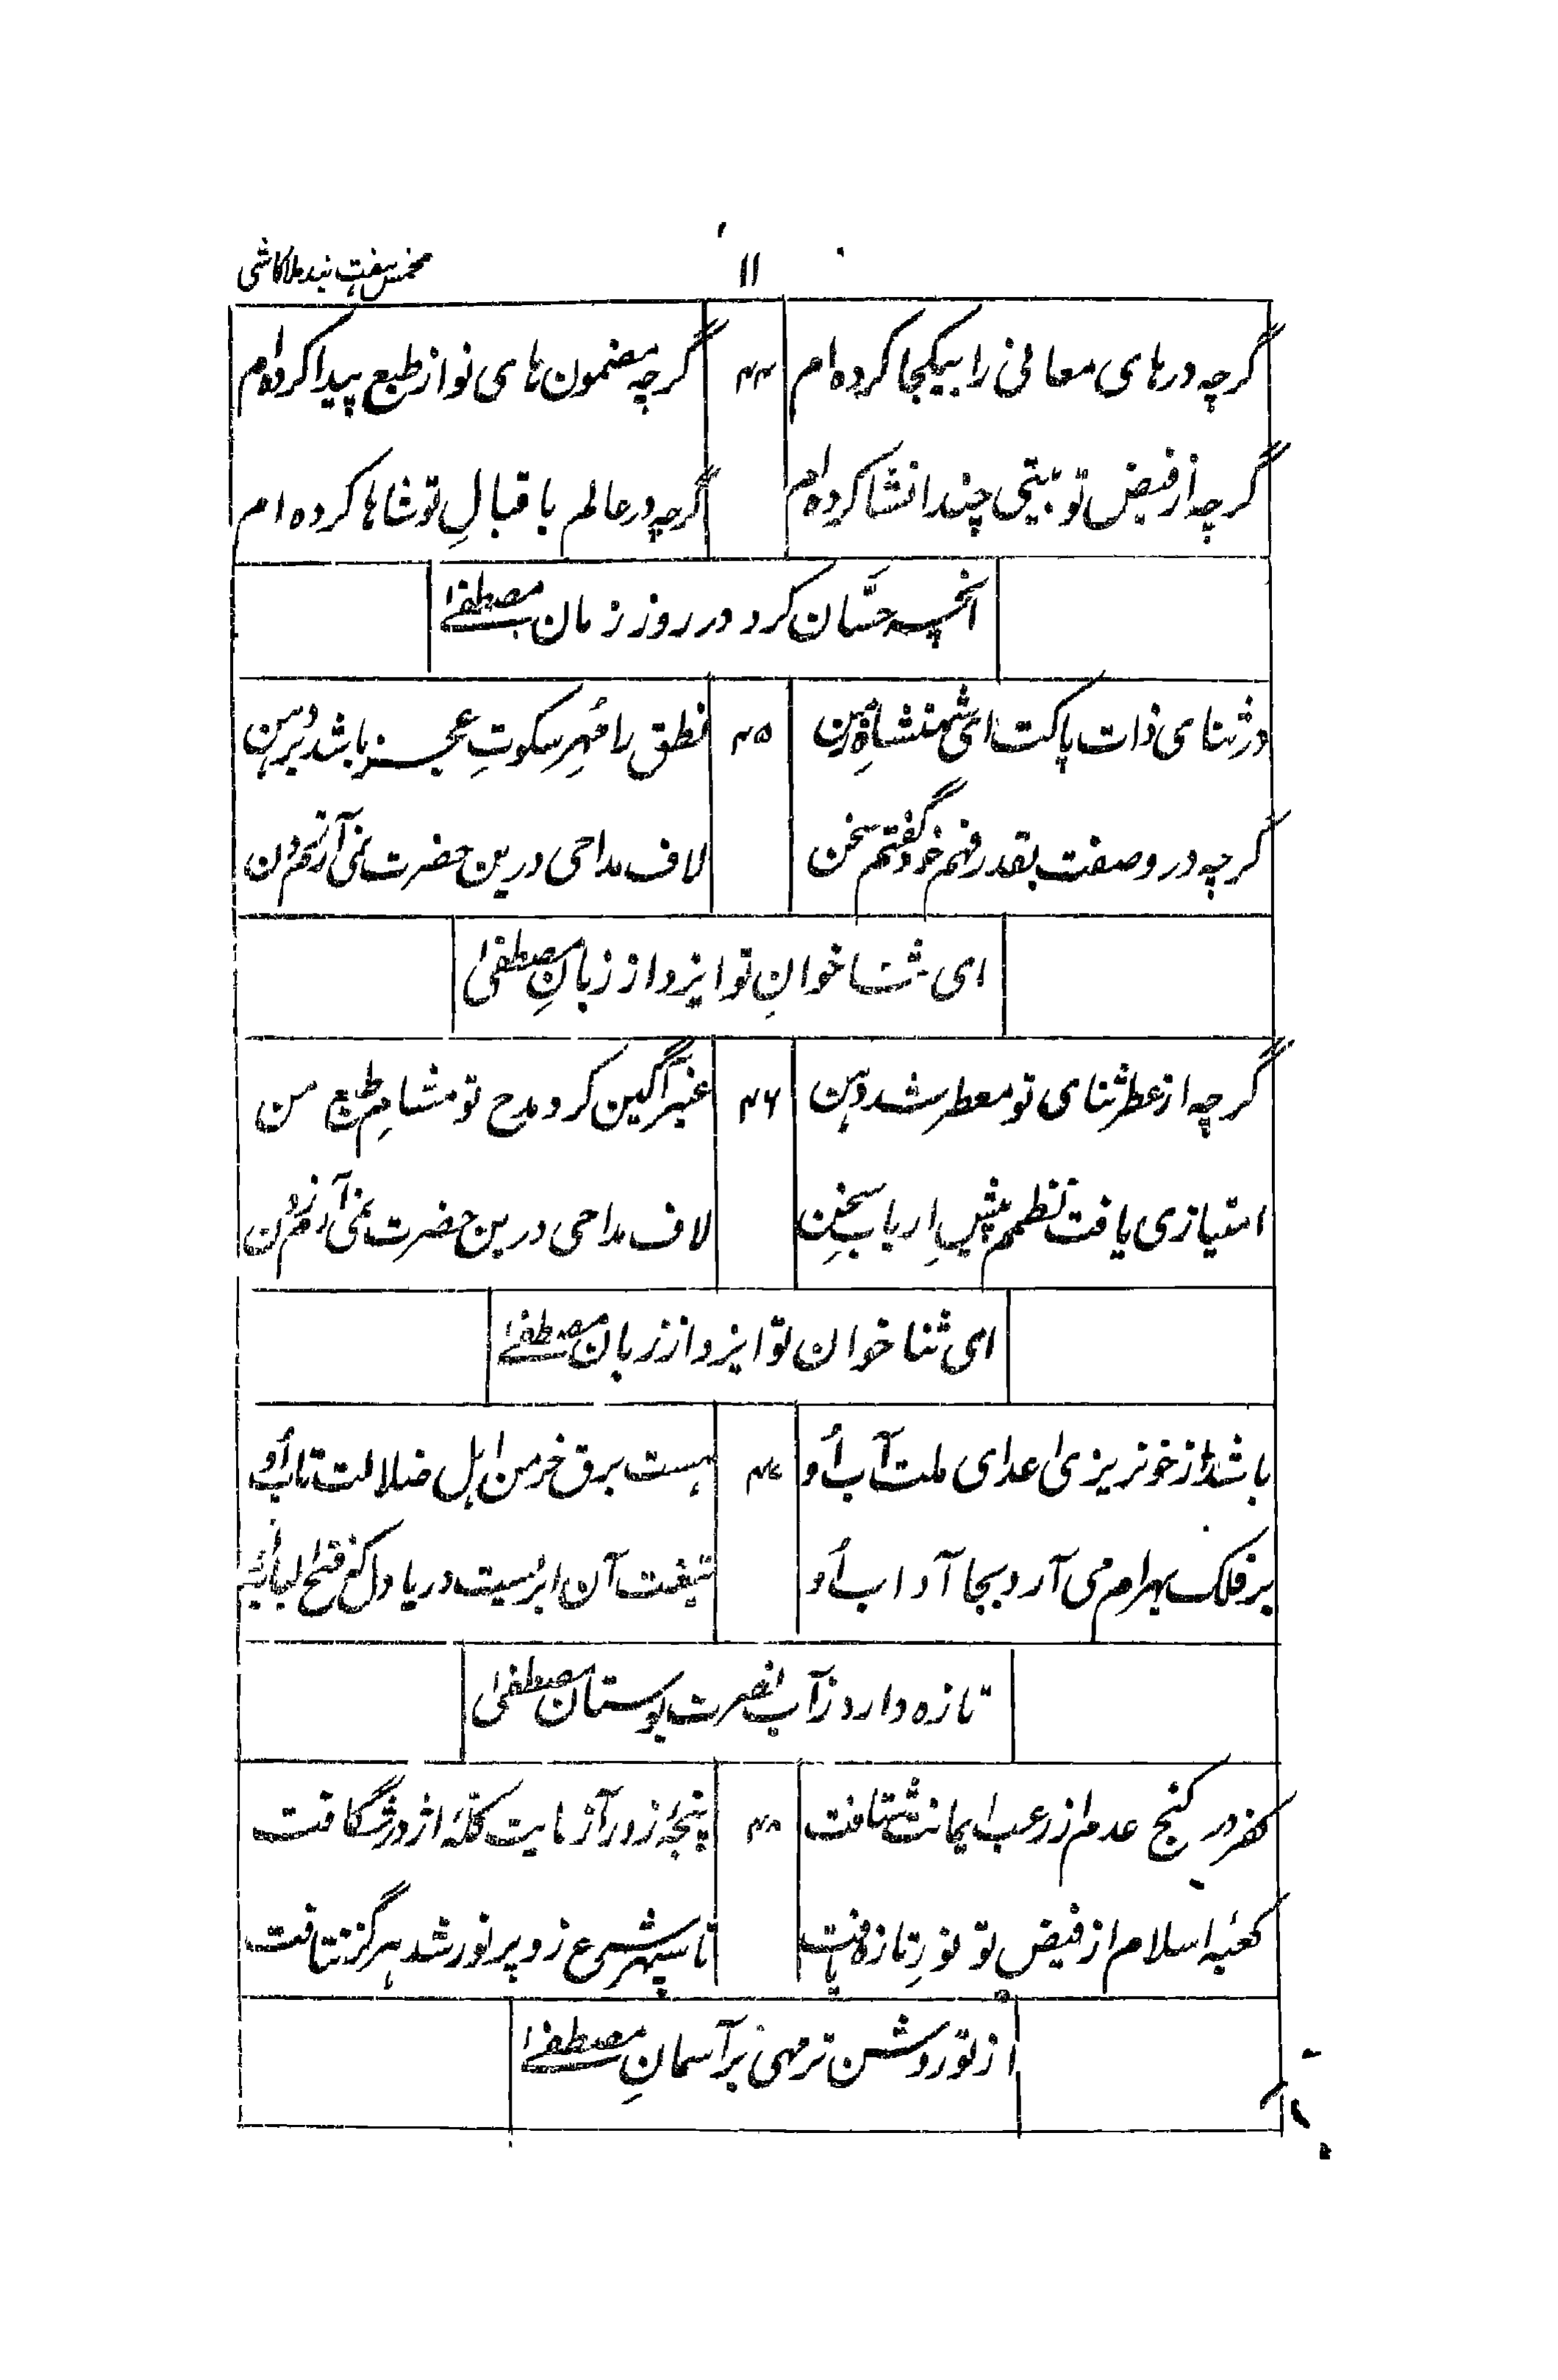 ۱۱ مخمس هفت بند ملا کاشی
گرچه درهای معانی را بیکجا کرده ام ۴۴ گرچه مضمون های نو از طبع پیدا کرده ام
گرچه از فیض تو بیتی چند انشا کرده ام گرچه در عالم باقبالِ تو شاها کرده ام
انچه حسّان کرد در روز زمان مصطفےٰ
در ثنای ذات پاکت ای شهنشاهِ زمن ۴۵ نطق را مُهرِ سکوتِ عجز باشد بر دهن
گرچه در وصفت بقدر فهم خود گفتم سخن لاف مداحی درین حضرت نمی آرم زدن
ای ثنا خوانِ تو ایزد از زبانِ مصطفیٰ
گرچه از عطر ثنای تو معطر شد دهن ۴۶ عنبر آگین کرد مدح تو مشامِ طبع من
امتیازی یافت نظمم پیشِ اربابِ سخن لاف مداحی درین حضرت نمی آرم زدن
ای ثنا خوان تو ایزد از زبان مصطفےٰ
باشد از خونریزی اعدای ملت آب اُو ۴۷ هست برق خرمن اهل ضلالت تاب اُو
بر فلک بهرام می آرد بجا آداب اُو تیغت آن ابریست دریا دل که فتح الباب اُو
تازه دارد ز آب نصرت بوستان مصطفیٰ
کفر در کنج عدم از رعب ایمانت شتافت ۴۸ پنجهٔ زور آزمایت کلّهٔ اژدر شگافت
کعبهٔ اسلام از فیض تو نورِ تازه یافت تا سپهر شرع زو پر نور شد هرگز نتافت
از تو روشن تر مهی بر آسمانِ مصطفےٰ